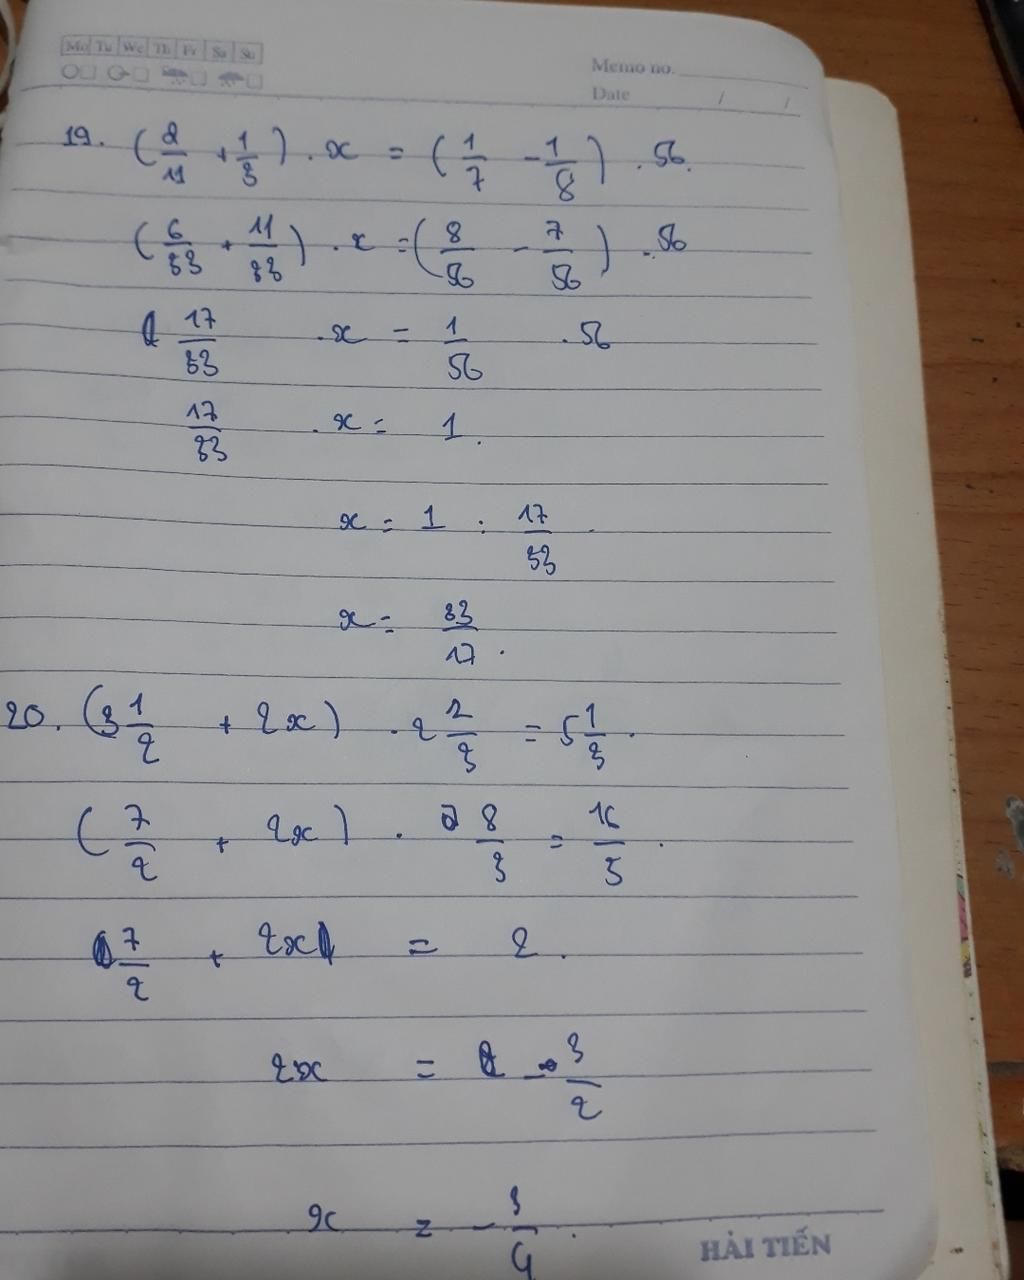 Mo Tu We Th Fr Sa Su
Memo no.
Date / /
19. (2/11 + 1/3) . x = (1/7 - 1/8) . 56.
(6/33 + 11/33) . x = (8/56 - 7/56) . 56
17/33 . x = 1/56 . 56
17/33 . x = 1.
x = 1 : 17/33
x = 33/17.
20. (3 1/2 + 2x) . 2 2/3 = 5 1/3.
(7/2 + 2x) . 8/3 = 16/3.
7/2 + 2x = 2.
2x = - 3/2
x = - 3/4.
HẢI TIẾN